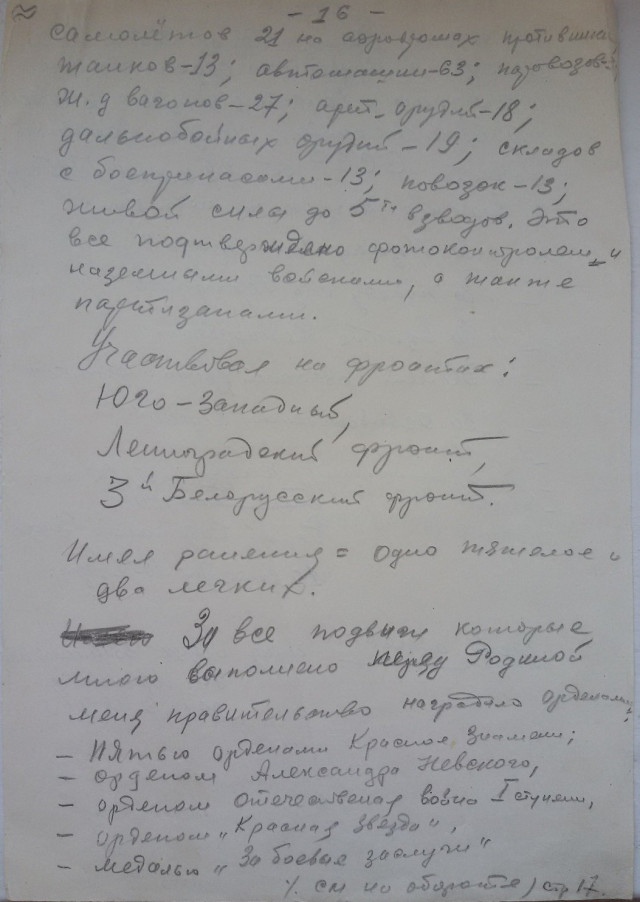 - 16 -
самолётов 21 на аэродромах противника
танков-13; автомашин-63; паровозов-
ж.д вагонов-27; арт. орудий-18;
дальнобойных орудий-19; складов
с боеприпасами-13; повозок-13;
живой силы до 5ти взводов. Это
все подтверждено фотоконтролем и
наземными войсками, а также
партизанами.
Участвовал на фронтах:
Юго-Западный,
Ленинградский фронт,
3й Белорусский фронт.
Имел ранения = одно тяжелое и
два легких.
За все подвиги которые
мною выполнено перед Родиной
меня правительство наградило орденами:
- Пятью орденами Красное Знамени;
- орденом Александра Невского,
- орденом отечественая война I ступени,
- орденом „Красная звезда",
- медалью „За боевые заслуги"
см на обороте) стр 17.